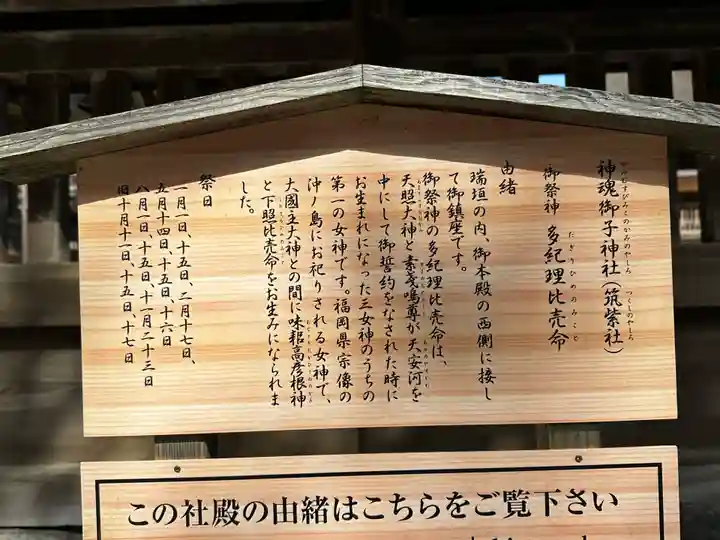 神魂御子神社(筑紫社)
御祭神 多紀理比売命
たぎりひめのみこと
由緒
瑞垣の内、御本殿の西側に接し
て御鎮座です。
御祭神の多紀理比売命は、
天照大神と素戔嗚尊が天安河を
中にして御誓約をなされた時に
お生まれになった三女神のうちの
第一の女神です。福岡県宗像の
沖ノ島にお祀りされる女神で、
大國主大神との間に味耜高彦根神
と下照比売命をお生みになられま
した。
祭日
一月一日、十五日、二月十七日、
五月十四日、十五日、十六日
八月一日、十五日、十一月二十三日
旧十月十一日、十五日、十七日
この社殿の由緒はこちらをご覧下さい